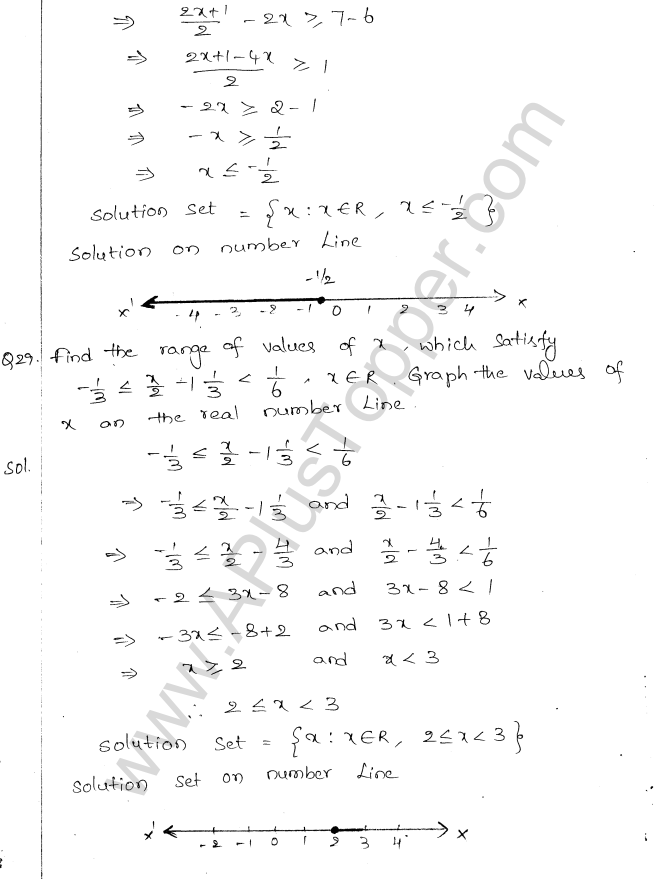 ⇒ (2x+1)/2 - 2x ≥ 7-6
⇒ (2x+1-4x)/2 ≥ 1
⇒ -2x ≥ 2-1
⇒ -x ≥ 1/2
⇒ x ≤ -1/2
Solution set = {x : x∈R, x ≤ -1/2}
Solution on number Line
-1/2
x' -4 -3 -2 -1 0 1 2 3 4 x
Q29. Find the range of values of x, which satisfy
-1/3 ≤ x/2 - 1 1/3 < 1/6, x∈R. Graph the values of
x on the real number Line.
Sol. -1/3 ≤ x/2 - 1 1/3 < 1/6
⇒ -1/3 ≤ x/2 - 1 1/3 and x/2 - 1 1/3 < 1/6
⇒ -1/3 ≤ x/2 - 4/3 and x/2 - 4/3 < 1/6
⇒ -2 ≤ 3x-8 and 3x-8 < 1
⇒ -3x ≤ -8+2 and 3x < 1+8
⇒ x ≥ 2 and x < 3
∴ 2 ≤ x < 3
Solution set = {x : x∈R, 2 ≤ x < 3}
Solution set on number Line
x' -2 -1 0 1 2 3 4 x
www.APlusTopper.com